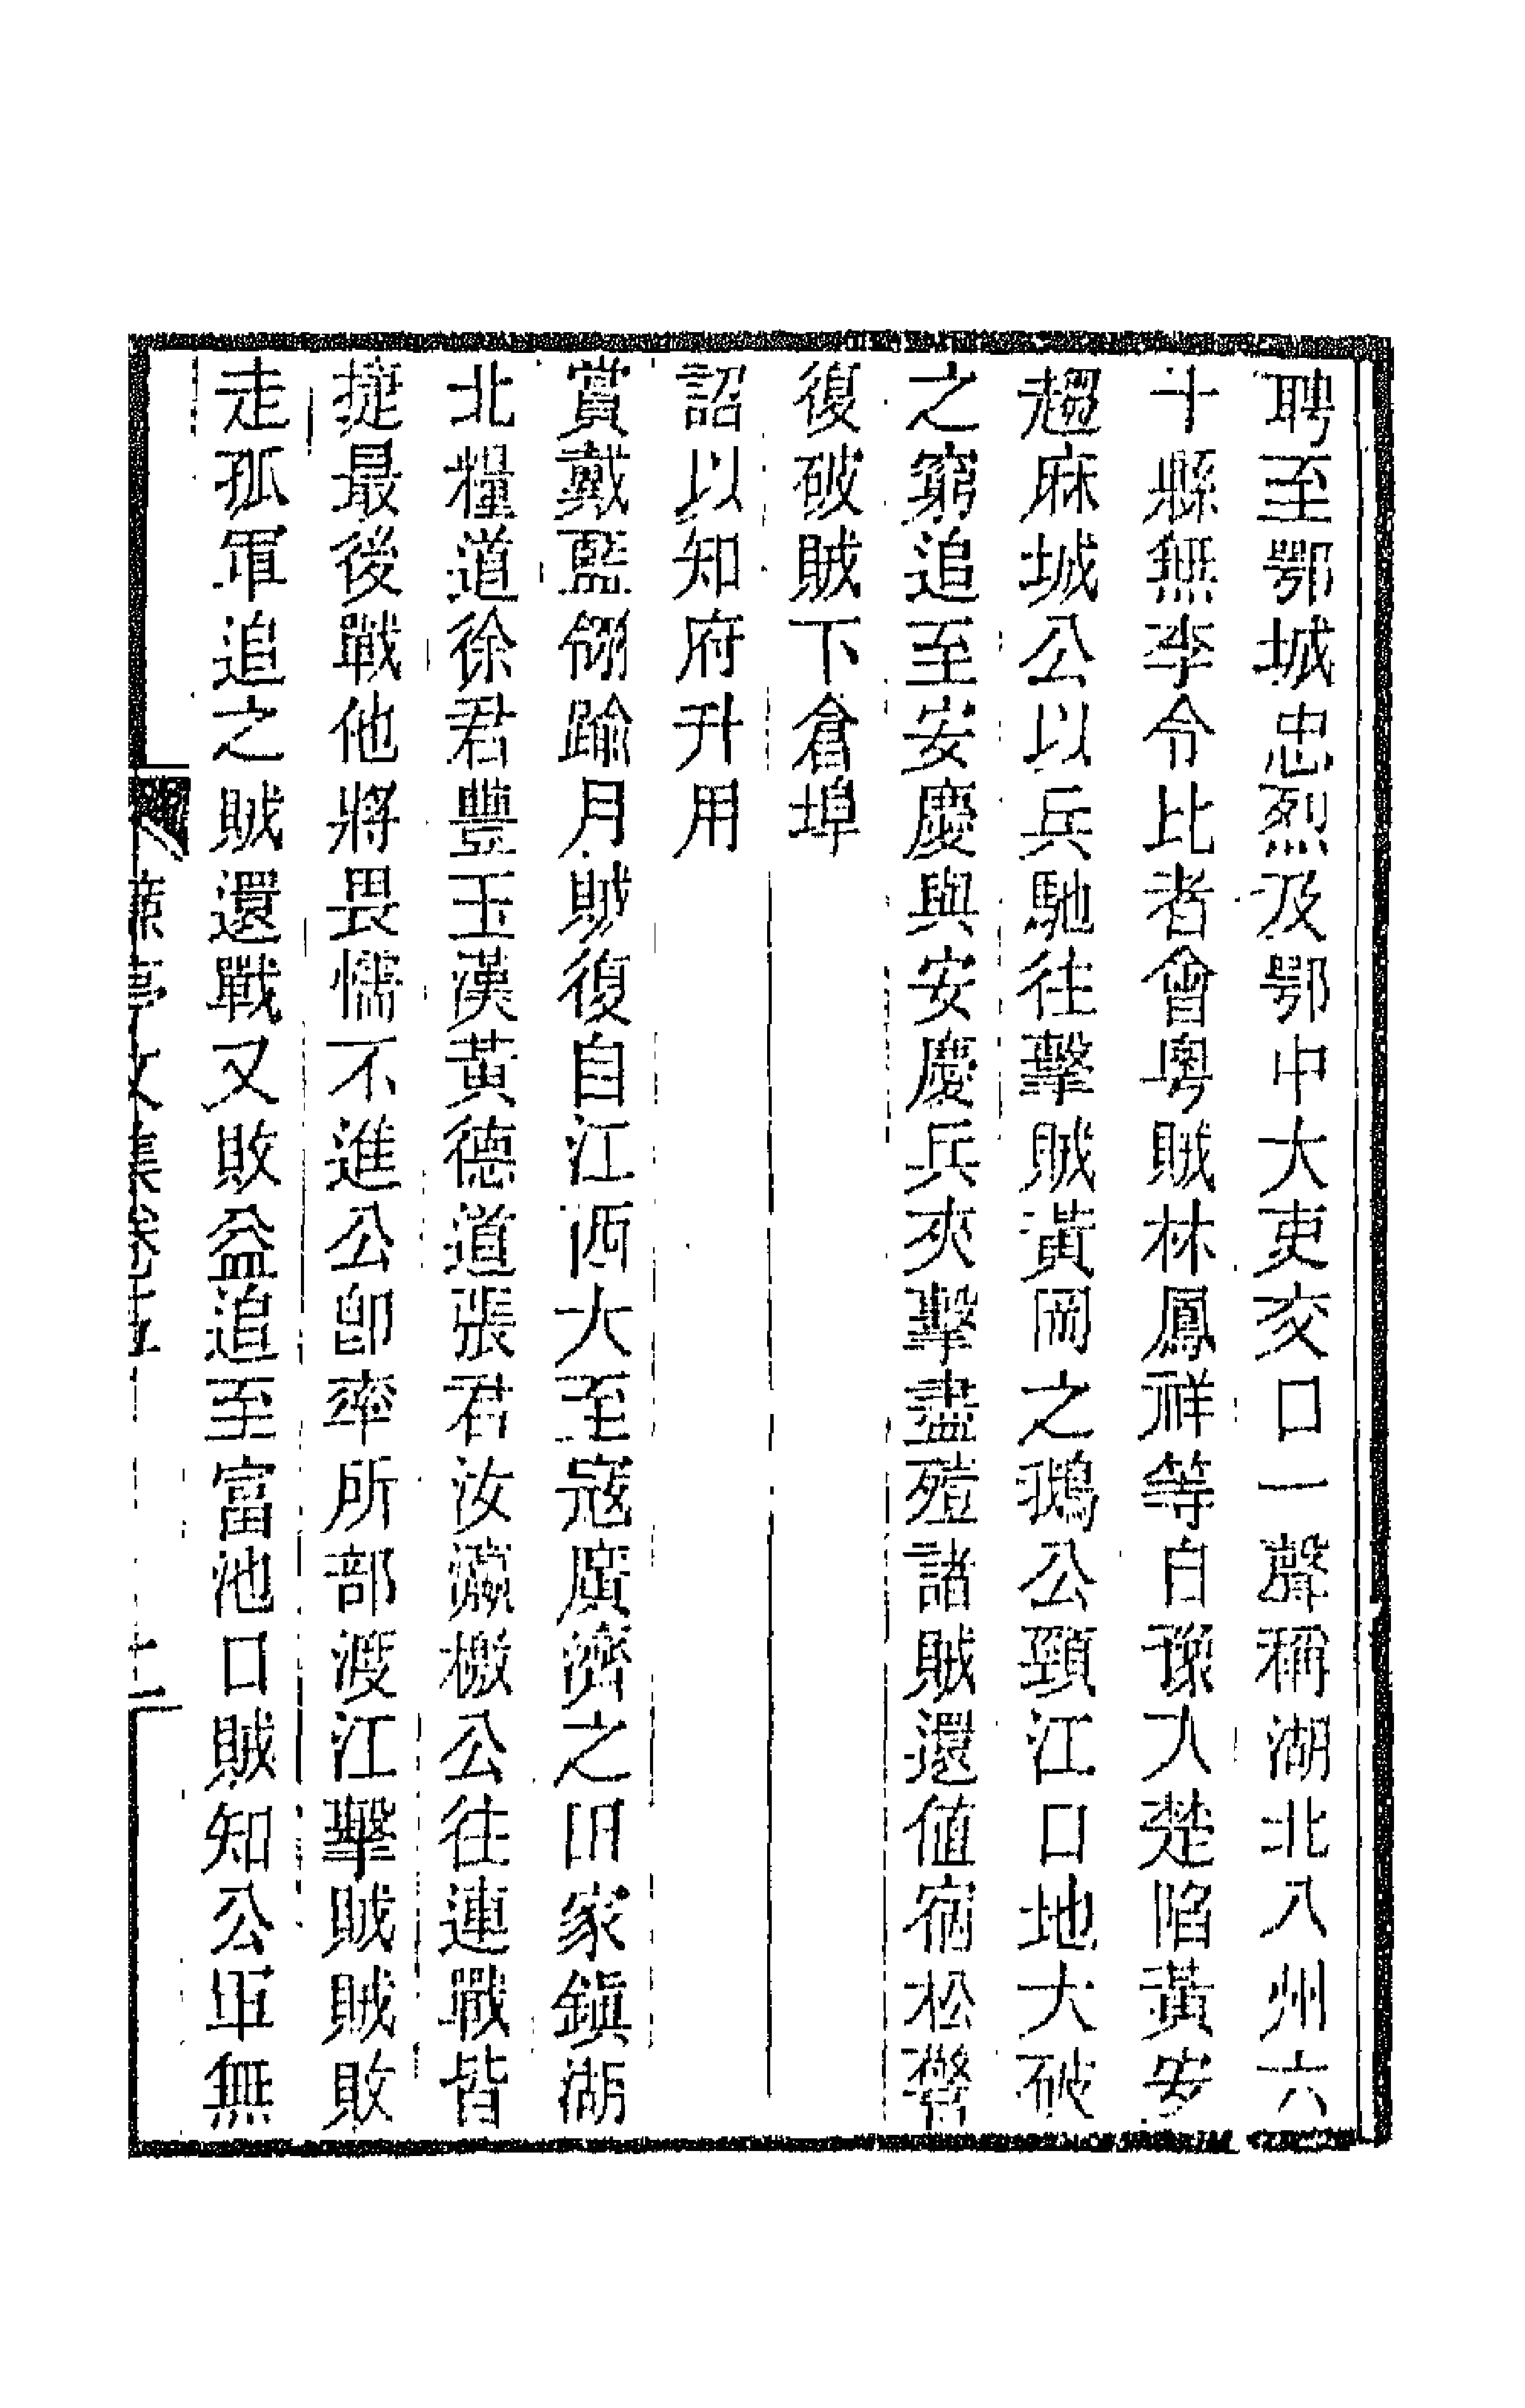 聘至鄂城忠烈及鄂中大吏交口一聲稱湖北八州六
十縣無李令比者會粤賊林鳳祥等自豫入楚陷黃安
趨麻城公以兵馳往擊賊黃岡之鵝公頸江口地大破
之窮追至安慶與安慶兵夾擊盡殪諸賊還值宿松警
復破賊下倉埠
詔以知府升用
賞戴藍翎踰月賊復自江西大至寇廣濟之田家鎮湖
北糧道徐君豐玉漢黃德道張君汝瀛檄公往連戰皆
捷最後戰他將畏懦不進公卽率所部渡江擊賊賊敗
走孤軍追之賊還戰又敗益追至富池口賊知公軍無
文集卷